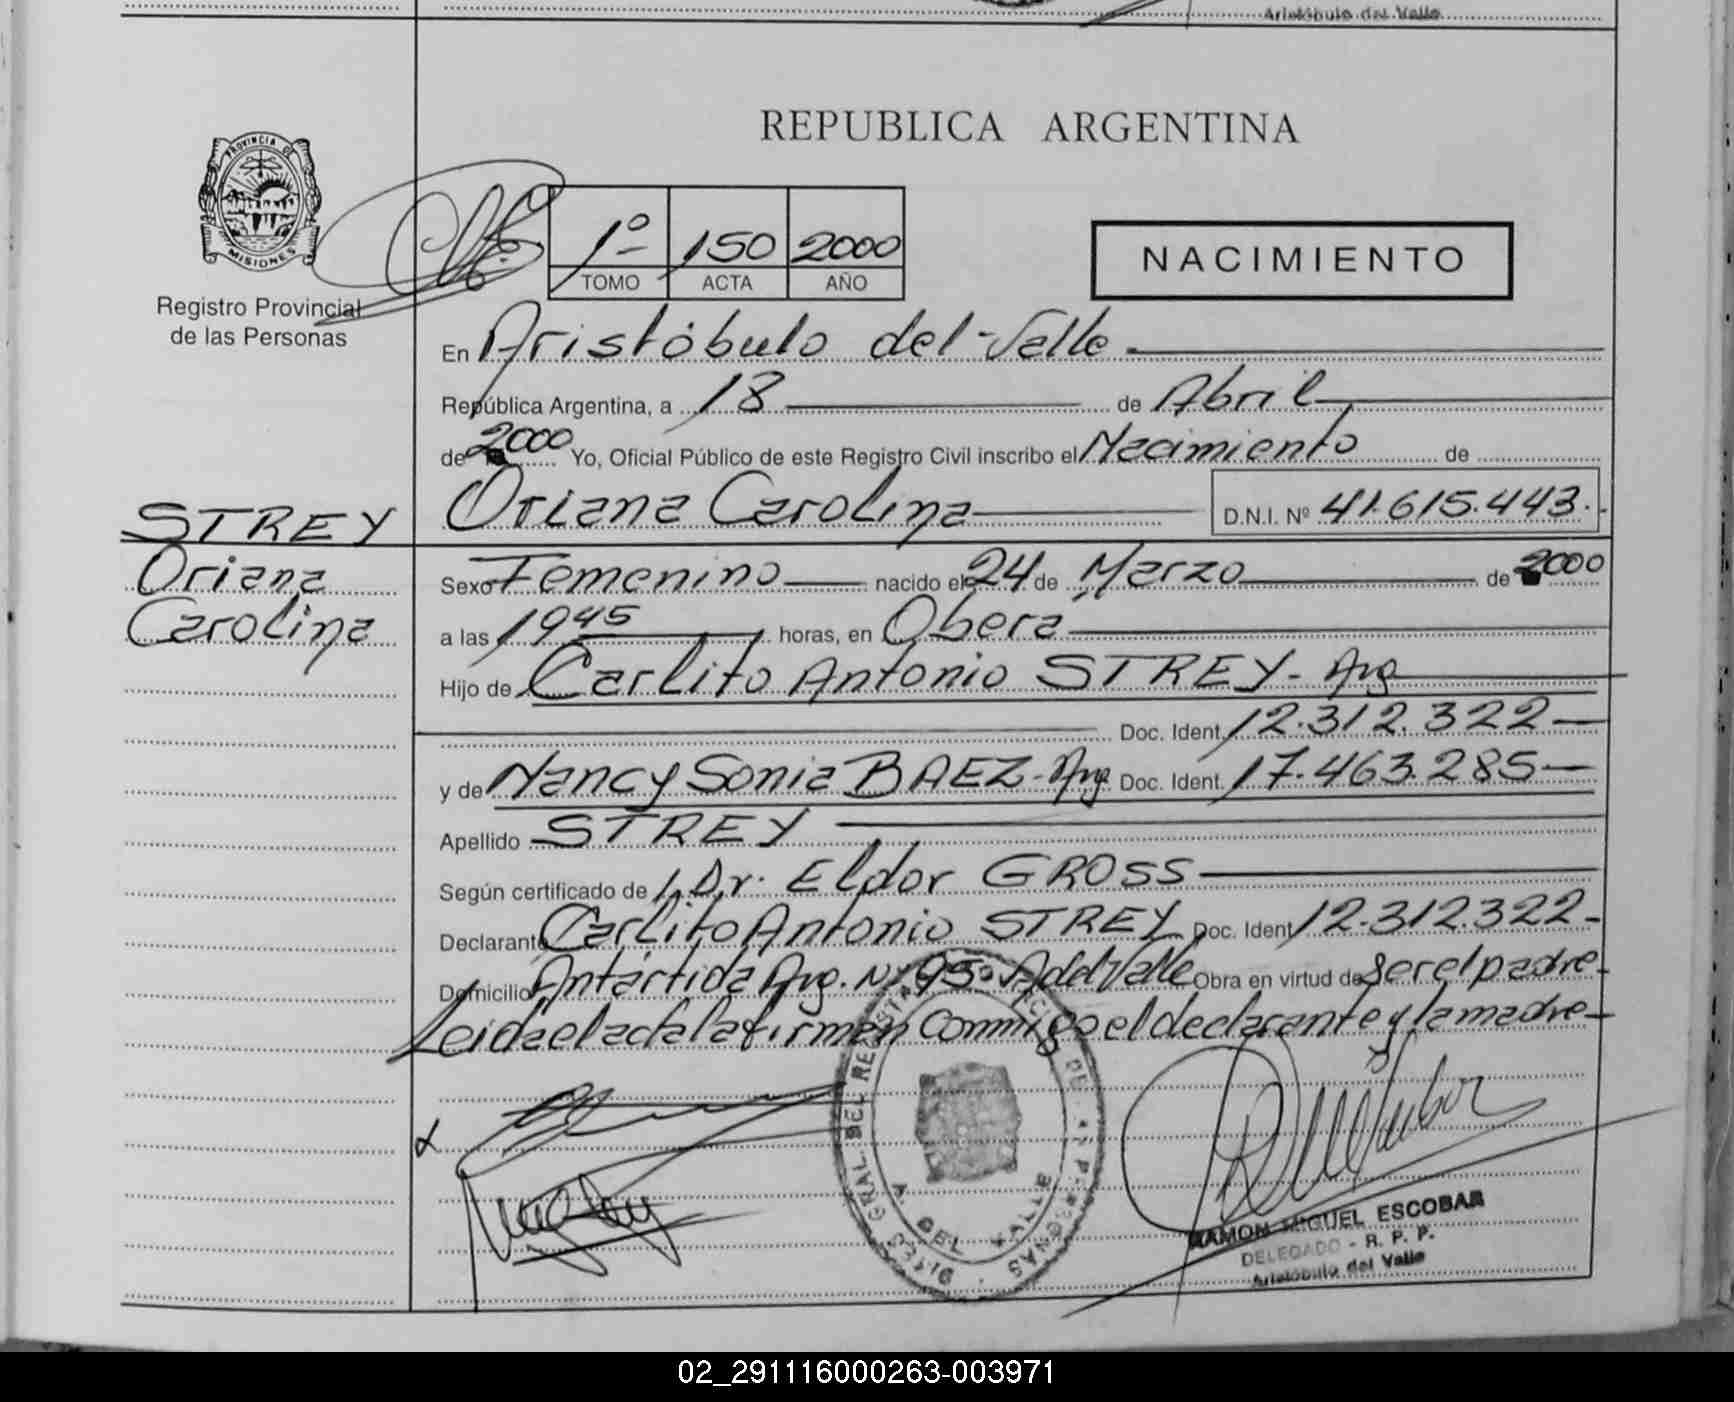 Aristóbulo del Valle
REPUBLICA ARGENTINA
PROVINCIA DE
MISIONES
Registro Provincial
de las Personas
1º 150 2000
TOMO ACTA AÑO
NACIMIENTO
En Aristóbulo del Valle
República Argentina, a 18 de Abril
de 2000 Yo, Oficial Público de este Registro Civil inscribo el Nacimiento de
Oriana Carolina D.N.I. Nº 41.615.443.-
STREY
Oriana
Carolina
Sexo Femenino nacido el 24 de Marzo de 2000
a las 1945 horas, en Oberá
Hijo de Carlito Antonio STREY - Arg
Doc. Ident. 12.312.322
y de Nancy Sonia BAEZ - Arg Doc. Ident. 17.463.285
Apellido STREY
Según certificado de Dr. Eldor GROSS
Declarante Carlito Antonio STREY Doc. Ident 12.312.322-
Domicilio Antártida Arg. Nº 95- A del Valle Obra en virtud de ser el padre-
Leida el acta la firman conmigo el declarante y la madre-
A. DEL VALLE
RAMON MIGUEL ESCOBAR
DELEGADO - R. P. P.
Aristóbulo del Valle
02_291116000263-003971